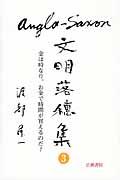 Anglo-Saxon
文明落穂集
3
金は時なり。お金で時間が買えるのだ!
渡部昇一
広瀬書院